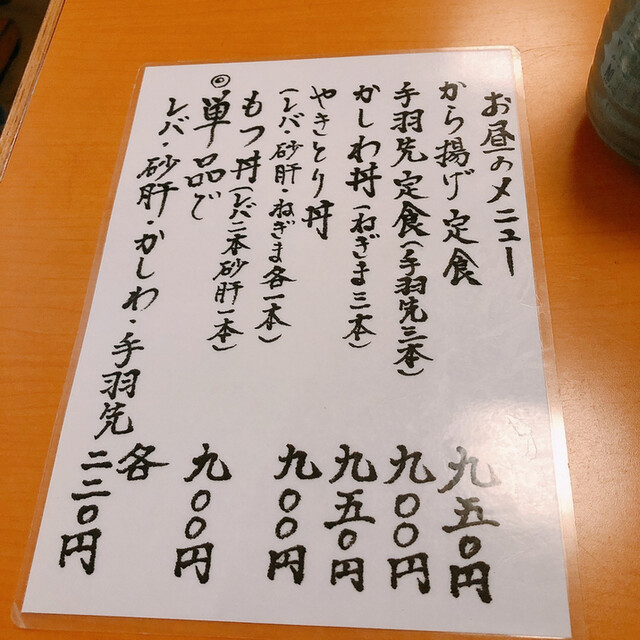 お昼のメニュー
から揚げ定食 九五〇円
手羽先定食(手羽先三本) 九〇〇円
かしわ丼(ねぎま三本) 九五〇円
やきとり丼
(レバ・砂肝・ねぎま各一本) 九〇〇円
もつ丼(レバ二本砂肝一本) 九〇〇円
◎単品で
レバ・砂肝・かしわ・手羽先 各
二二〇円